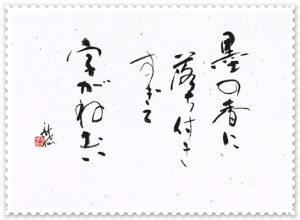 墨の香に
落ち付き
すぎて
字がねむい